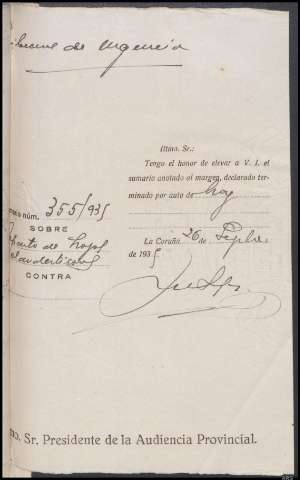 de Urgencia
Iltmo. Sr.:
Tengo el honor de elevar a V. I. el
sumario anotado al margen, declarado ter-
minado por auto de hoy
núm. 355/935
SOBRE
de hojas
clandestinas
CONTRA
La Coruña 26 de Sepbre
de 1935
Sr. Presidente de la Audiencia Provincial.